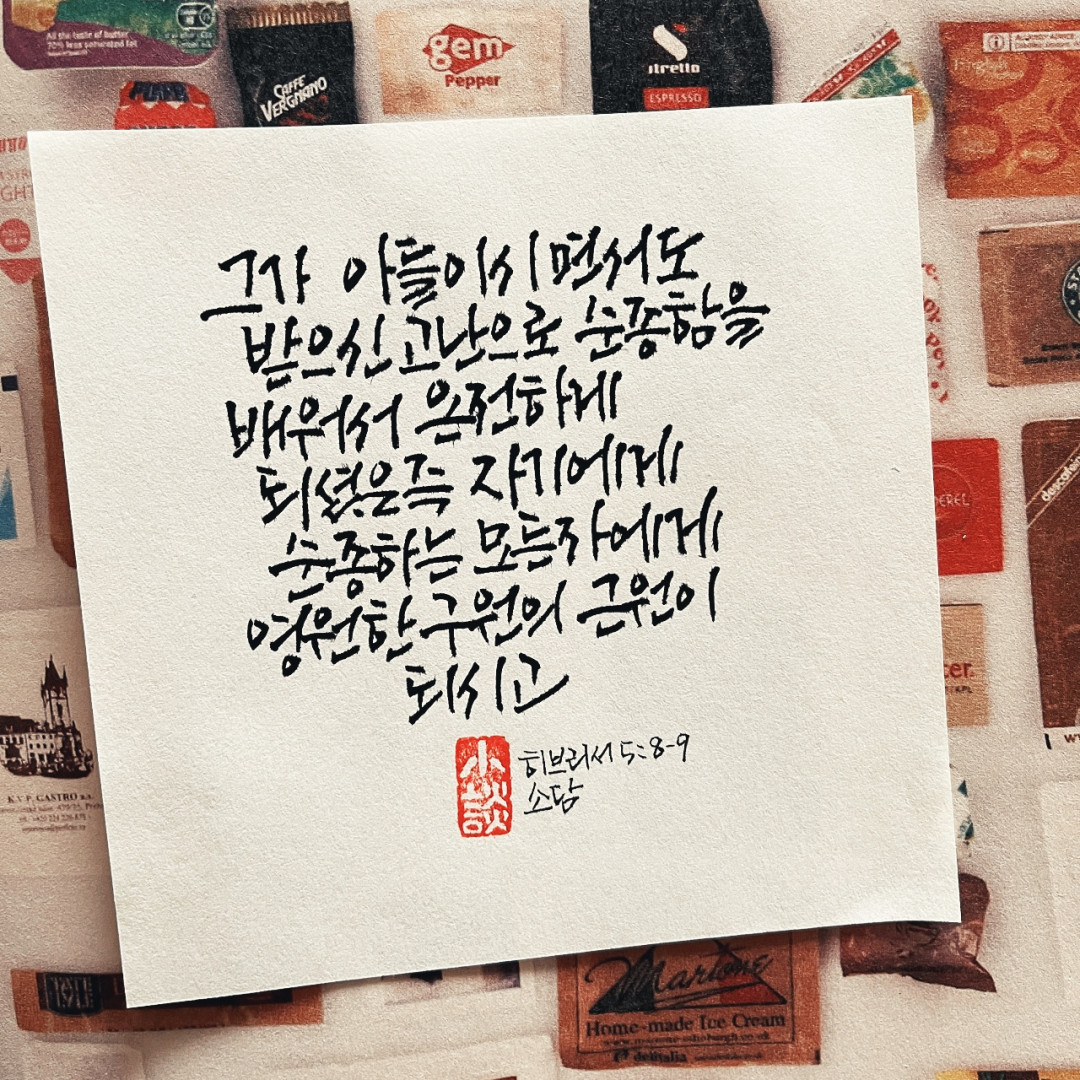 All the taste of butter
70% less saturated fat
CAFFÈ
VERGNANO
gem
Pepper
stretto
ESPRESSO
English
그가 아들이시면서도
받으신 고난으로 순종함을
배워서 온전하게
되셨은즉 자기에게
순종하는 모든자에게
영원한 구원의 근원이
되시고
小談
히브리서 5:8-9
소담
K.V.P. GASTRO a.s.
Martone
Home-made Ice Cream
delitalia